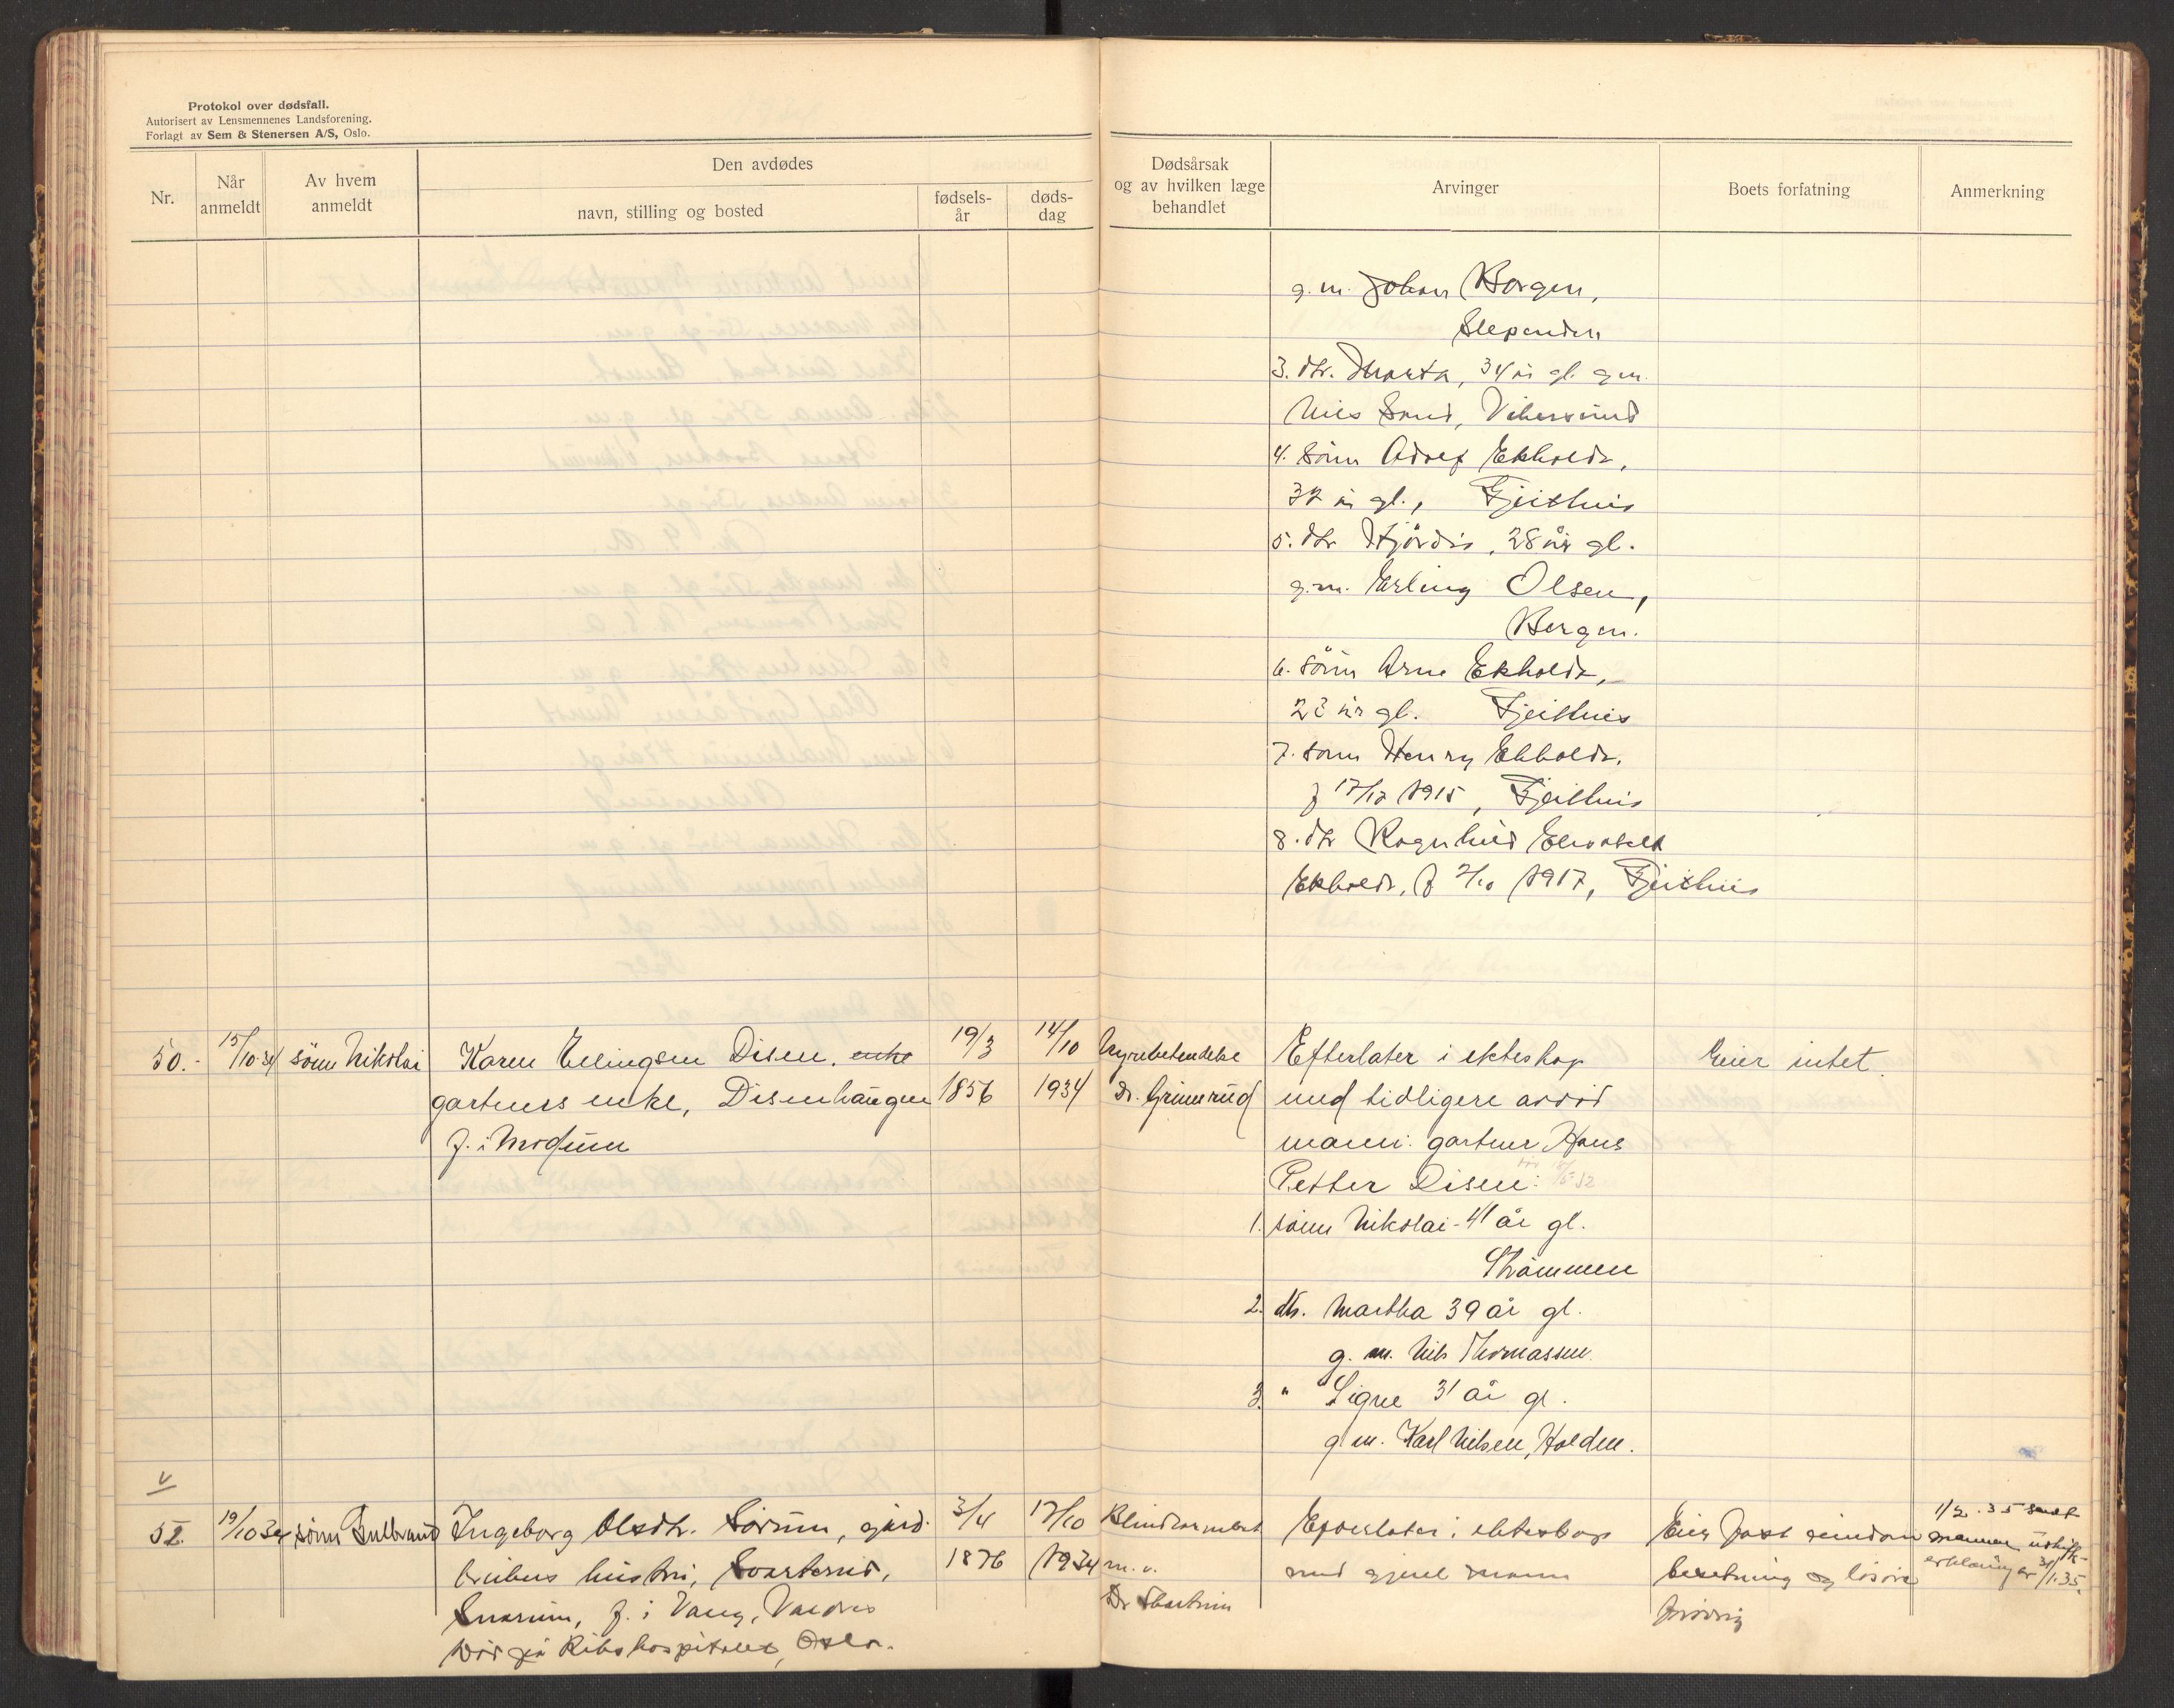 Protokol over dødsfall.
Autorisert av Lensmennenes Landsforening.
Forlagt av Sem & Stenersen A/S, Oslo.
Nr.
Når anmeldt
Av hvem anmeldt
Den avdødes
navn, stilling og bosted
fødsels-år
døds-dag
Dødsårsak og av hvilken læge behandlet
Arvinger
Boets forfatning
Anmerkning
g.m. Johan Borgen,
Slependen
3. dtr. Marta, 34 år gl. g.m.
Nils Sand, Vikersund
4. sönn Adolf Ekholdt,
32 år gl., Geithus
5. dtr Hjördis, 28 år gl.
g.m. Erling Olsen,
Bergen.
6. sönn Arne Ekholdt,
22 år gl. Geithus
7. sönn Henry Ekholdt,
f 17/12 1915, Geithus
8. dtr Ragnhild Elisabeth
Ekholdt, f 2/10 1917, Geithus
50.- 15/10-34 sönn Nikolai Karen Ellingsen Disen, enke 19/3 14/10 Nyrebetendelse Efterlater i ekteskap Eier intet.
gartners enke, Disenhaugen 1856 1934 Dr. Grimsrud med tidligere avdöd
f. i Modum mann: gartner Hans
Petter Disen: död 18/5-32
1. sönn Nikolai - 41 år gl.
Strömmen
2. dtr. Martha 39 år gl.
g. m. Nils Thomassen.
3. " Signe 31 år gl.
g. m. Karl Nilsen, Halden.
v
52. 19/10 34 sönn Gulbrand Ingeborg Olsdtr. Sörum, gård- 3/4 17/10 Blindtarmbet. Efterlater i ekteskap Eier fast eiendom 1/2. 35 sendt
mannen uskifte-
brukers hustru, Svarterud, 1876 1934 m.v. med gjenl. mann besetning og lösöre erklæring av 31/1.35.
Snarum, f. i Vang, Valdres Dr
död på Rikshospitalet, Oslo.